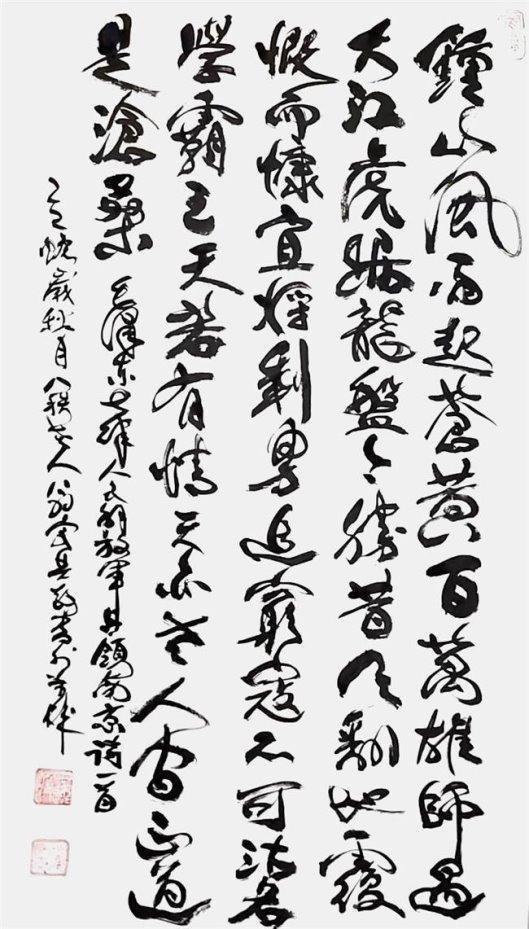 鐘山風雨起蒼黃百萬雄師過
大江虎踞龍盤今勝昔天翻地覆
慨而慷宜將剩勇追窮寇不可沽名
學霸王天若有情天亦老人间正道
是滄桑 毛澤東七律人民解放軍占領南京詩一首
蛇歲秋月八秩老人翁